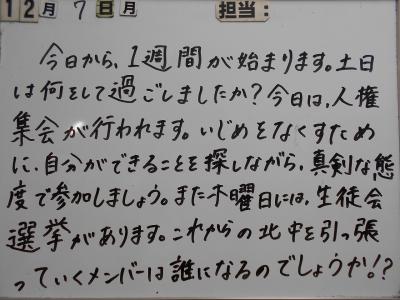 12月7日月 担当:
今日から、1週間が始まります。土日
は何をして過ごしましたか?今日は、人権
集会が行われます。いじめをなくすため
に、自分ができることを探しながら、真剣な態
度で参加しましょう。また木曜日には、生徒会
選挙があります。これからの北中を引っ張
っていくメンバーは誰になるのでしょうか!?